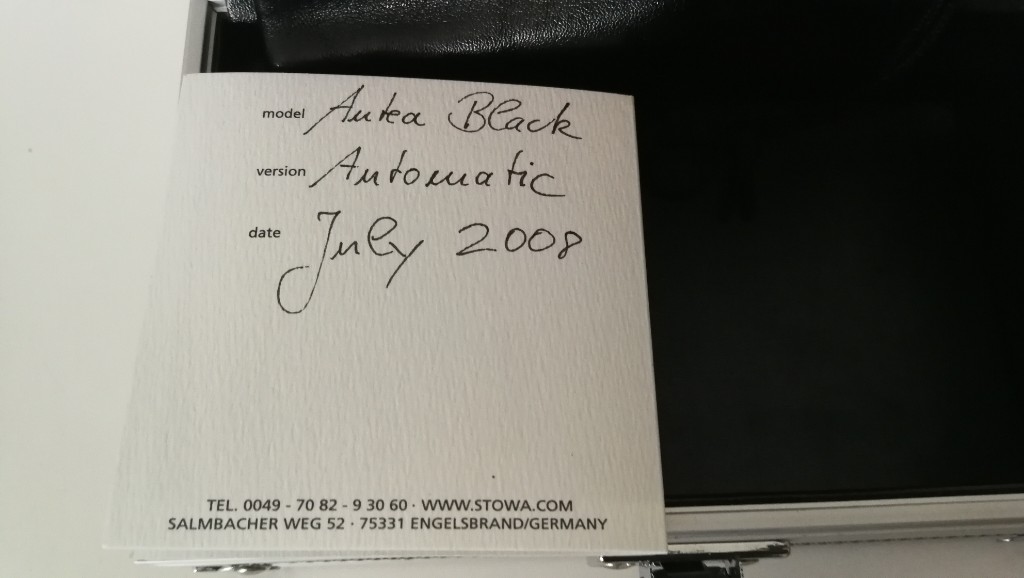 model Antea Black
version Automatic
date July 2008
TEL. 0049 - 70 82 - 9 30 60 · WWW.STOWA.COM
SALMBACHER WEG 52 · 75331 ENGELSBRAND/GERMANY